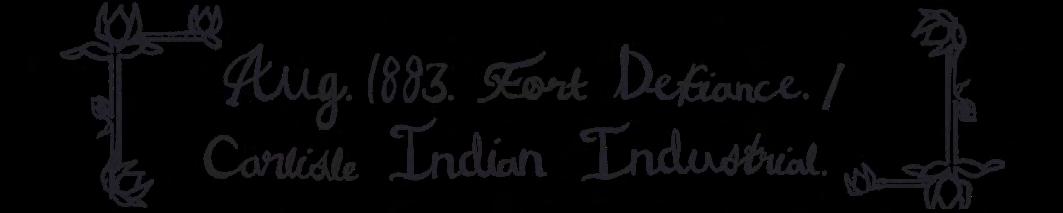 Aug. 1883. Fort Defiance. /
Carlisle Indian Industrial.